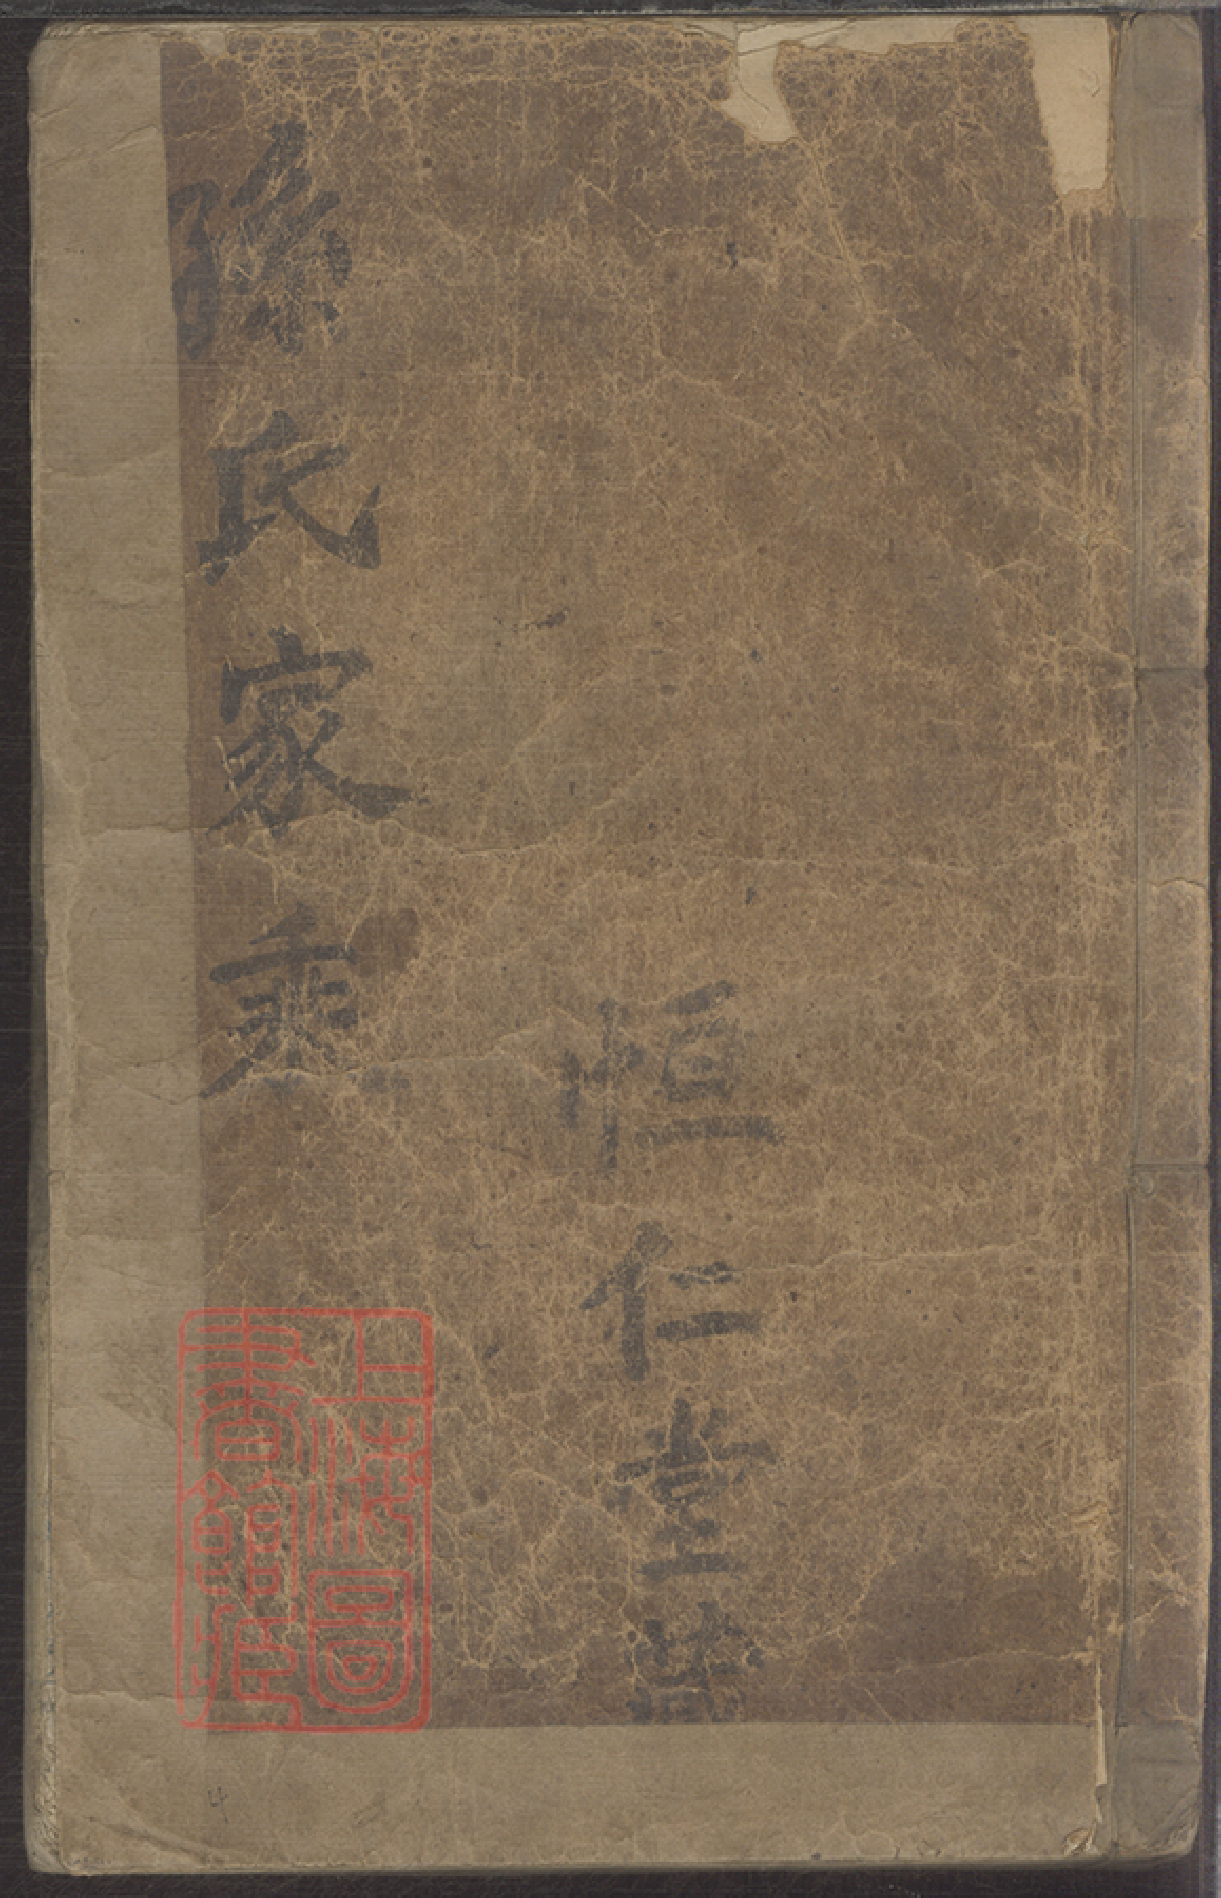 恒仁堂
孫氏家乘
上海圖
書館藏
4